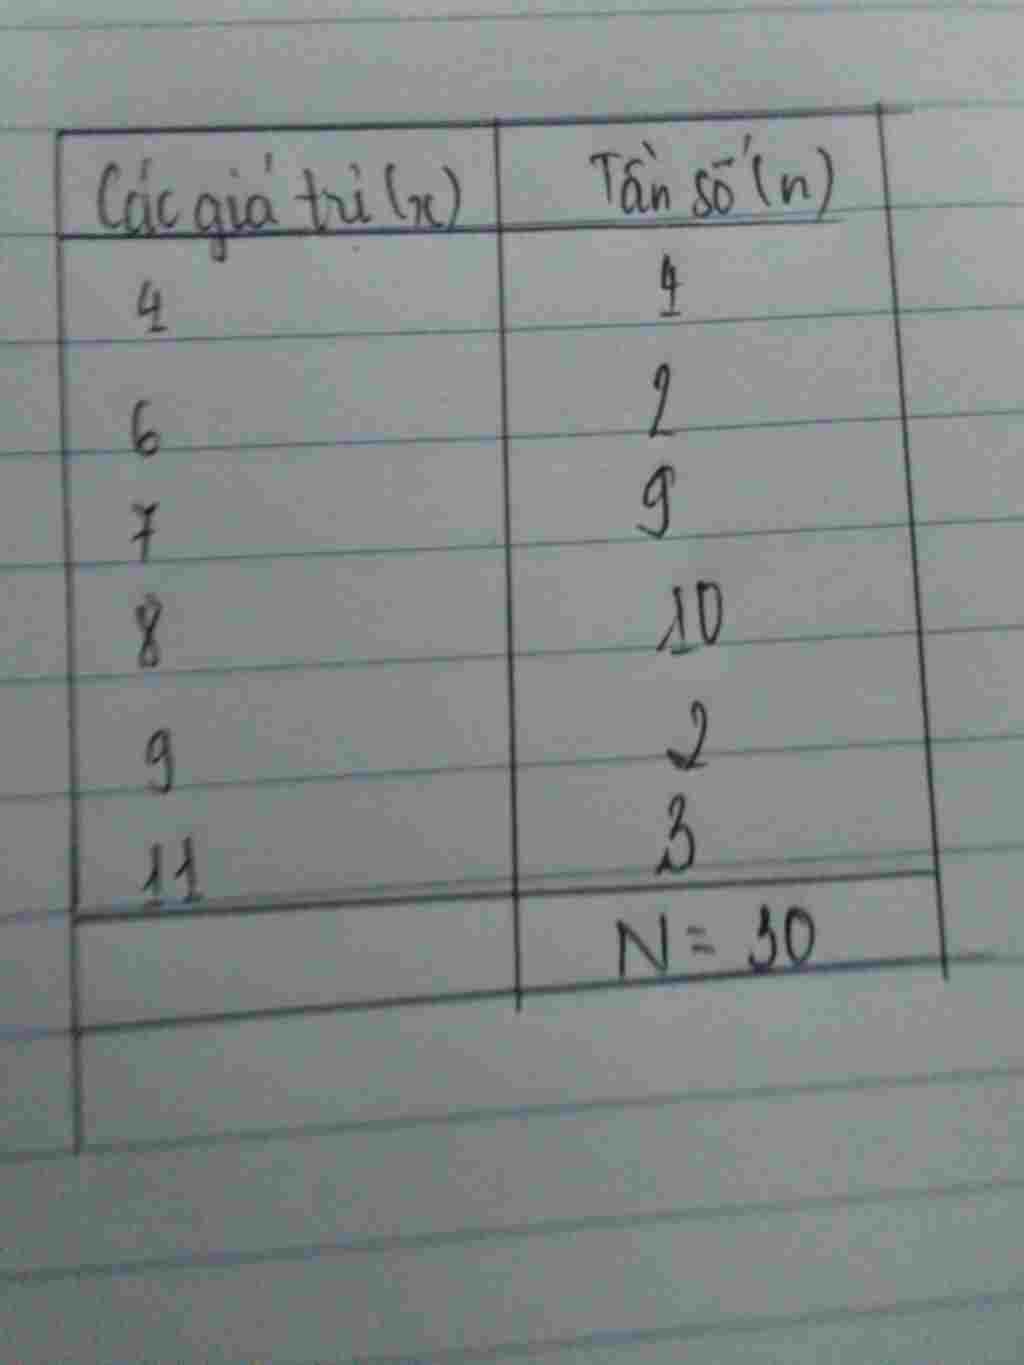 Các giá trị (x) Tần số (n)
4 4
6 2
7 9
8 10
9 2
11 3
N = 30